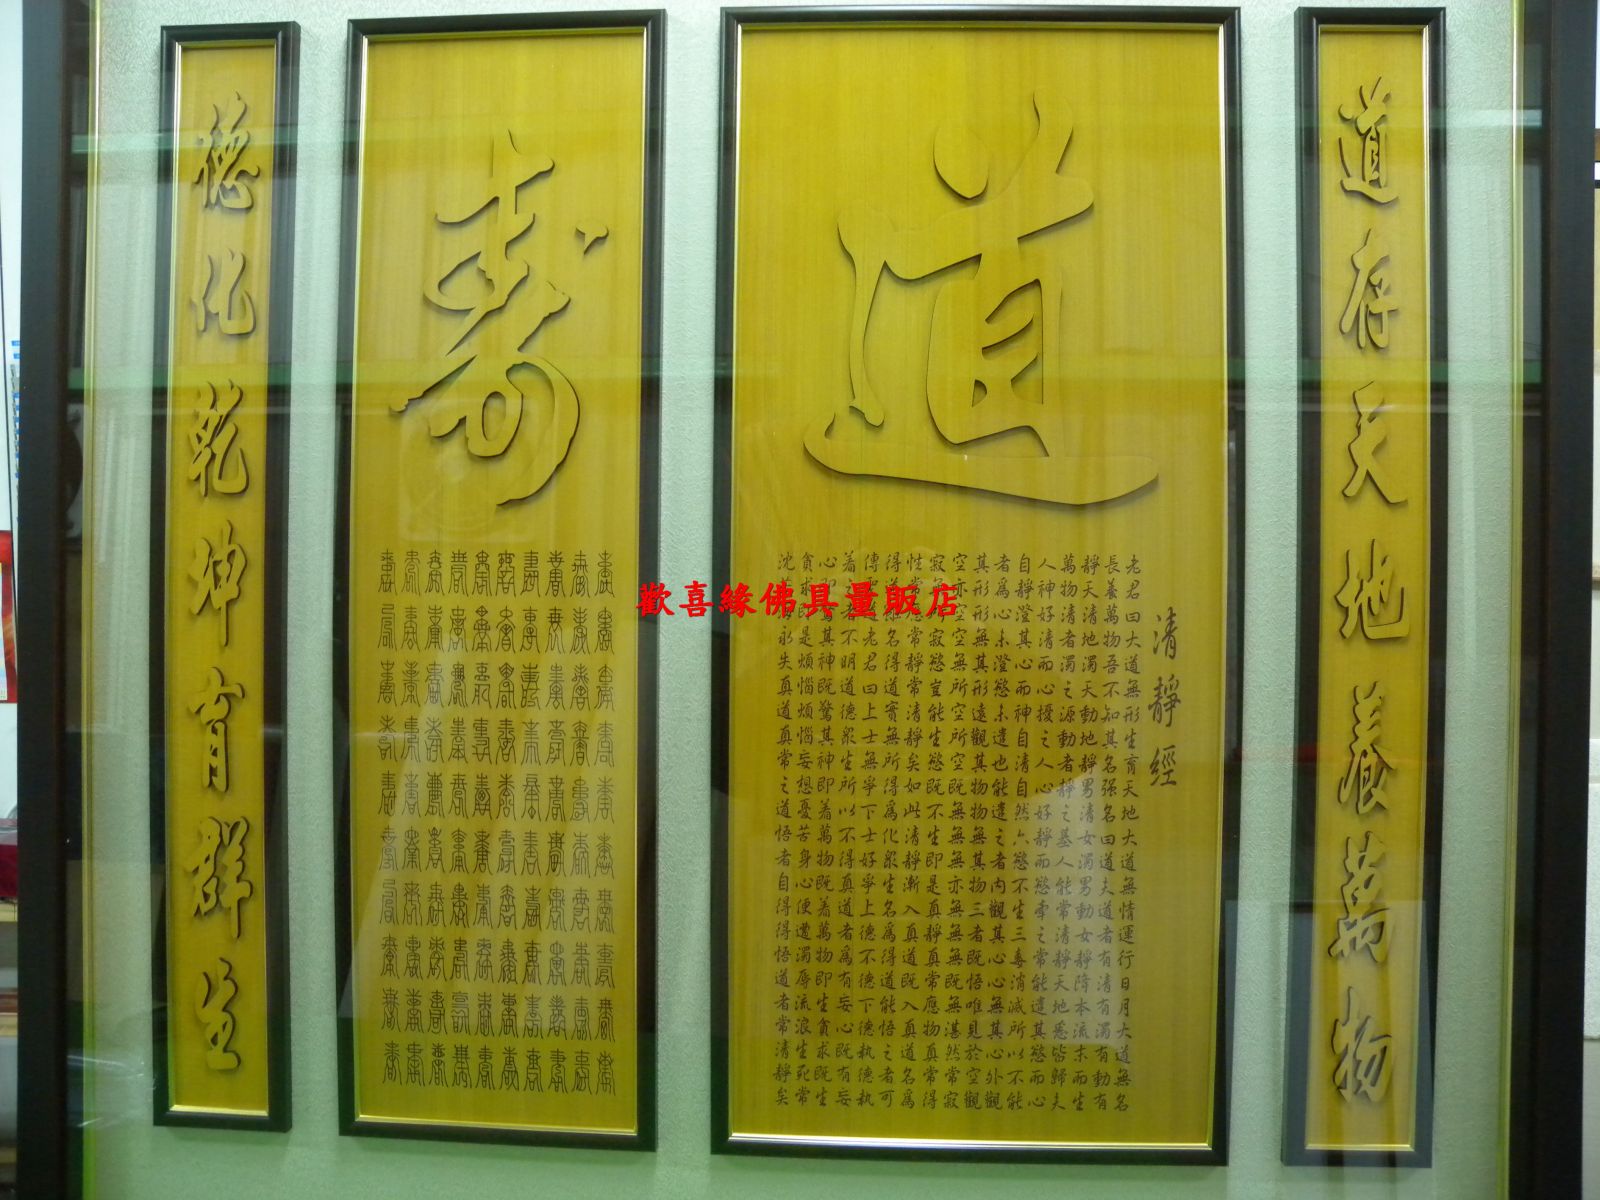 道存天地養萬物
道
清靜經
老君曰大道無形生育天地大道無情運行日月大道無名
長養萬物吾不知其名强名曰道夫道者有清有濁有動有
靜天清地濁天動地靜男清女濁男動女靜降本流末而生
萬物清者濁之源動者靜之基人能常清靜天地悉皆歸夫
人神好清而心擾之人心好靜而慾牽之常能遣其慾而心
自靜澄其心而神自清自然六慾不生三毒消滅所以不能
者為心未澄慾未遣也能遣之者內觀其心心無其心外觀
其形形無其形遠觀其物物無其物三者既悟唯見於空觀
空亦空空無所空所空既無無無亦無無無既無湛然常寂
寂無寂慾豈能生慾既不生即是真靜真常應物真常得
性常應常靜常清靜矣如此清靜漸入真道既入真道名為
得道雖名得道實無所得為化眾生名為得道能悟之者可
傳道老君曰上士無爭下士好爭上德不德下德執德執
着之者不明道德眾生所以不得真道者為有妄心既有妄
心即驚其神既驚其神即着萬物既着萬物即生貪求既生
貪求即是煩惱煩惱妄想憂苦身心便遭濁辱流浪生死常
沈永失真道真常之道悟者自得得悟道者常清靜矣
壽
德化乾坤育群生
歡喜緣佛具量販店